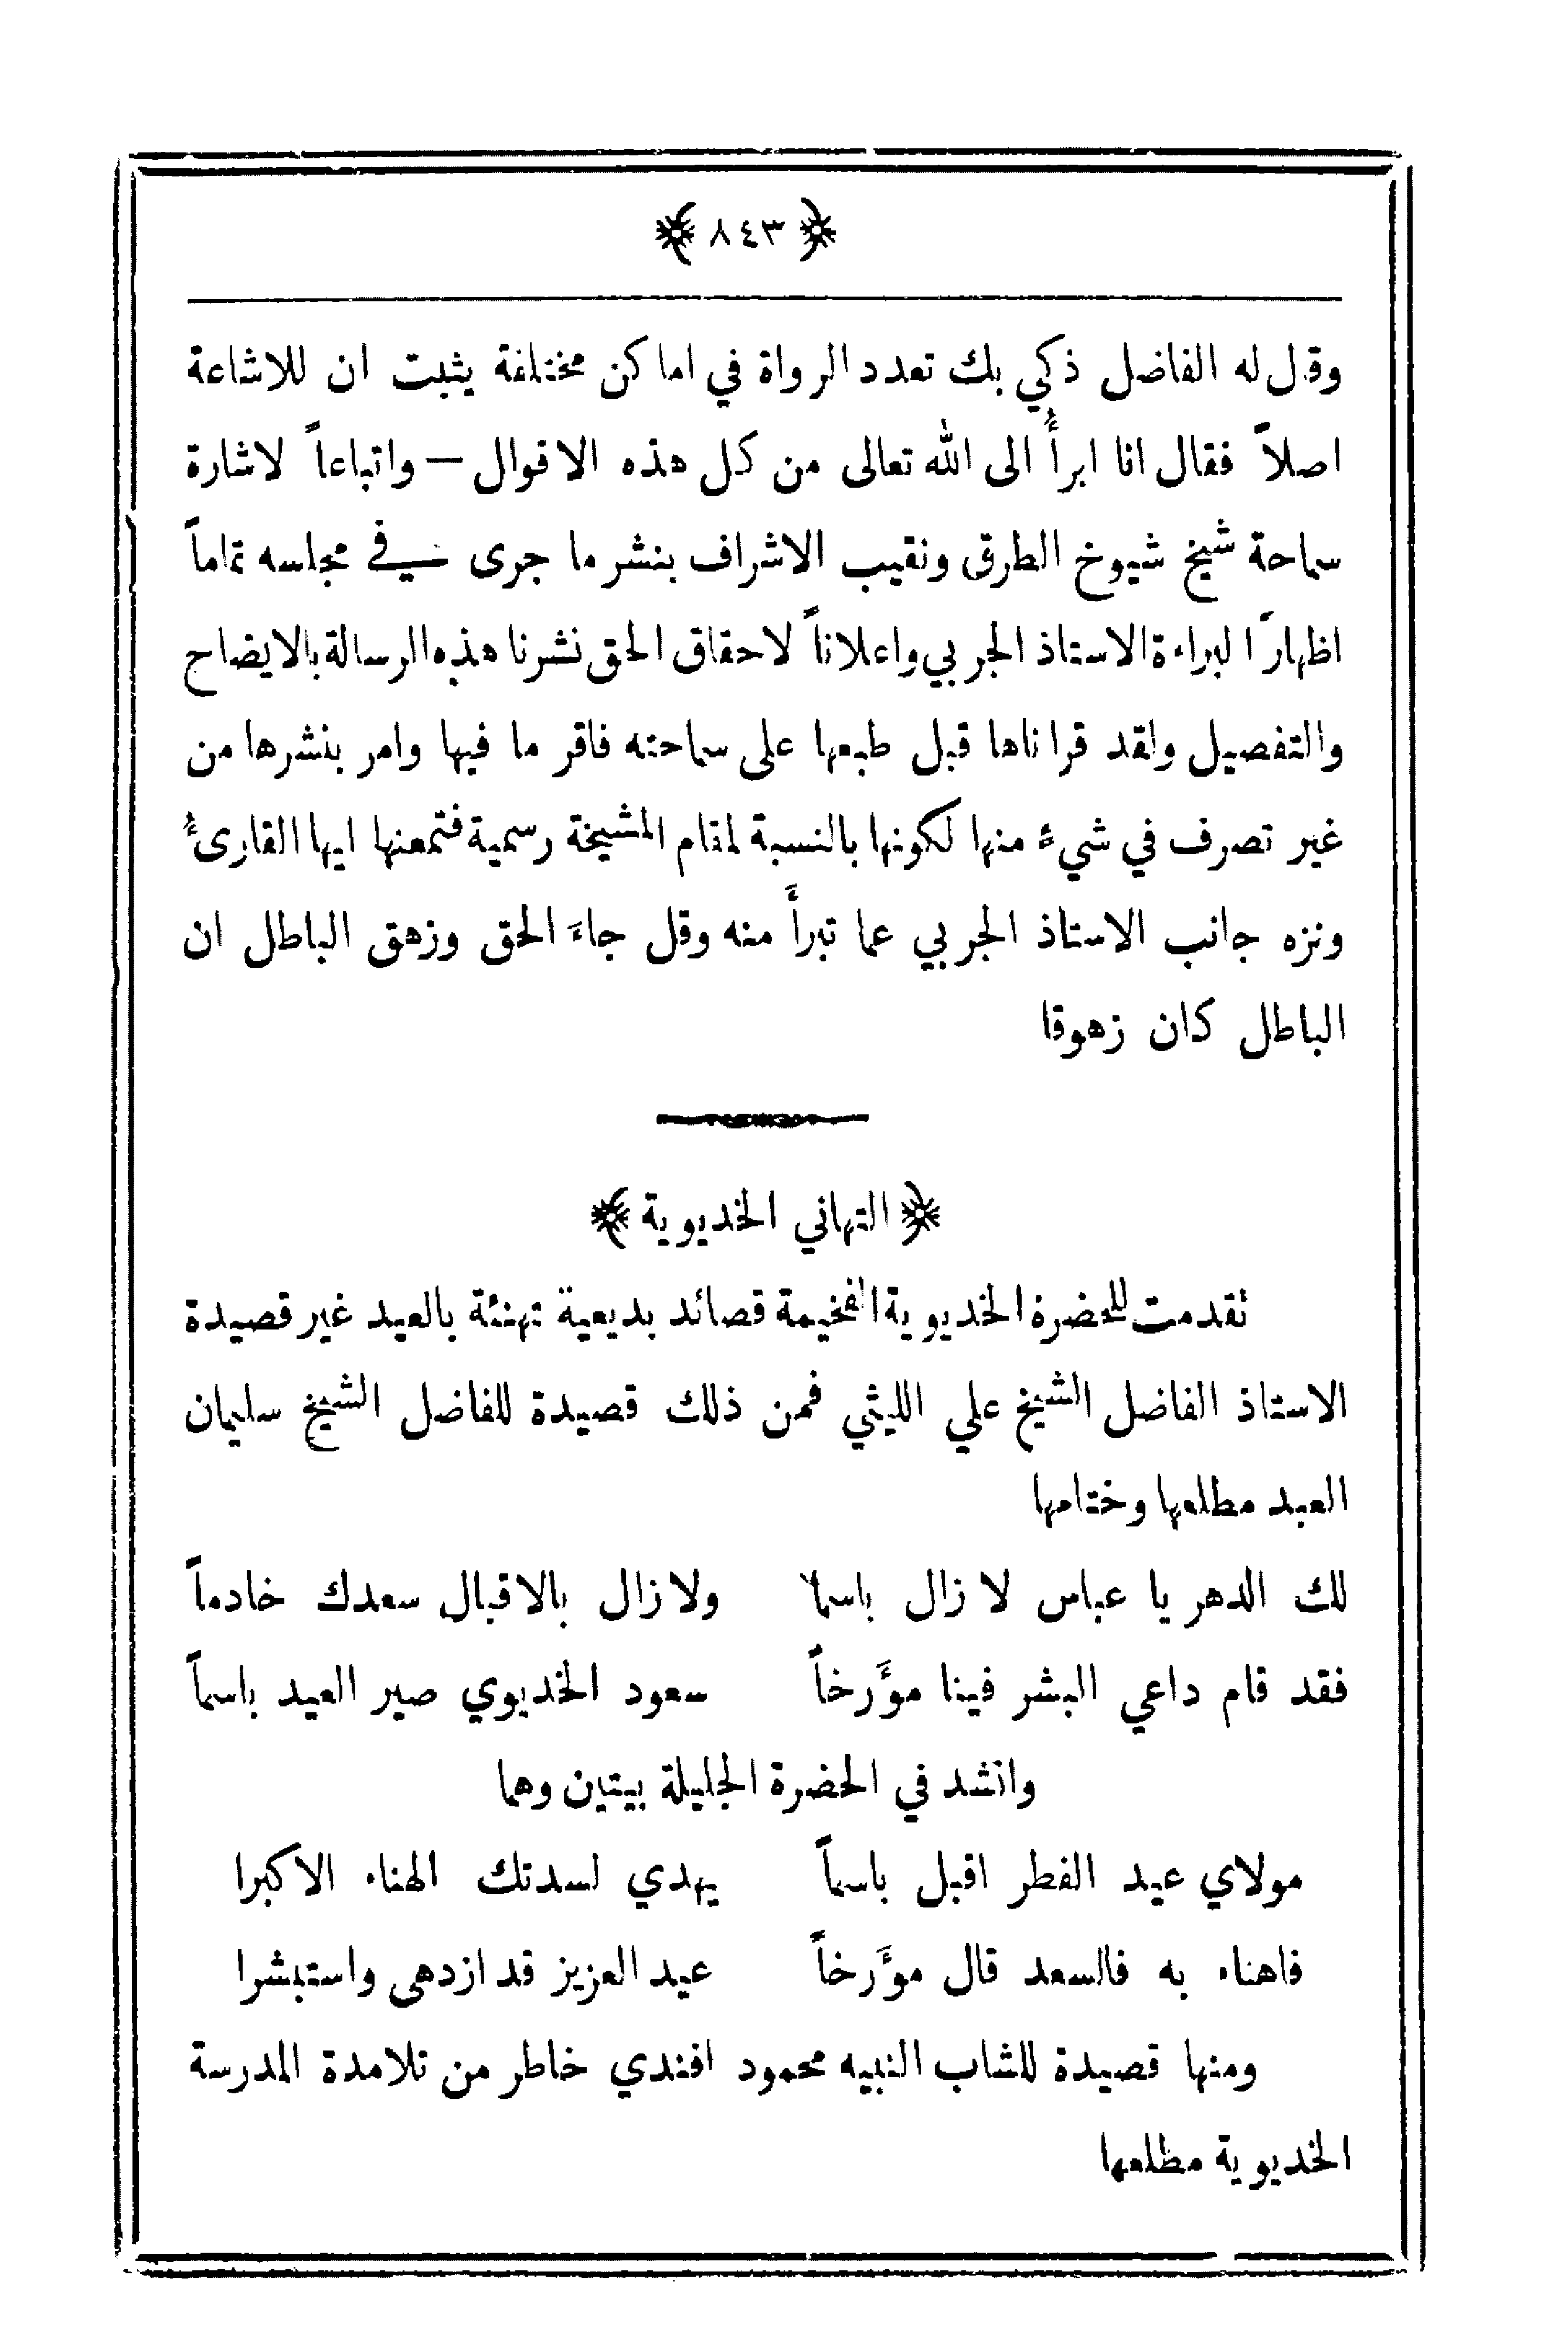 ﴿ ٨٤٣ ﴾
وقال له الفاضل ذكي بك تعدد الرواة في اماكن مختلفة يثبت ان للاشاعة
اصلاً فقال انا ابرأُ الى الله تعالى من كل هذه الاقوال – واتباعاً لاشارة
سماحة شيخ شيوخ الطرق ونقيب الاشراف بنشر ما جرى في مجلسه تماماً
اظهارًا لبراءة الاستاذ الجربي واعلاناً لاحقاق الحق نشرنا هذه الرسالة بالايضاح
والتفصيل ولقد قراناها قبل طبعها على سماحته فاقر ما فيها وامر بنشرها من
غير تصرف في شيءٍ منها لكونها بالنسبة لمقام المشيخة رسمية فتمعنها ايها القارئُ
ونزه جانب الاستاذ الجربي عما تبرأَ منه وقل جاءَ الحق وزهق الباطل ان
الباطل كان زهوقا
﴿ التهاني الخديوية ﴾
تقدمت للحضرة الخديوية الفخيمة قصائد بديعية تهنئة بالعيد غير قصيدة
الاستاذ الفاضل الشيخ علي الليثي فمن ذلك قصيدة للفاضل الشيخ سليمان
العبد مطلعها وختامها
لك الدهر يا عباس لا زال باسما ولا زال بالاقبال سعدك خادماً
فقد قام داعي البشر فينا مؤَرخاً سعود الخديوي صير العيد باسماً
وانشد في الحضرة الجليلة بيتين وهما
مولاي عيد الفطر اقبل باسماً يهدي لسدتك الهناء الاكبرا
فاهناء به فالسعد قال مؤَرخاً عيد العزيز قد ازدهى واستبشرا
ومنها قصيدة للشاب النبيه محمود افندي خاطر من تلامدة المدرسة
الخديوية مطلعها